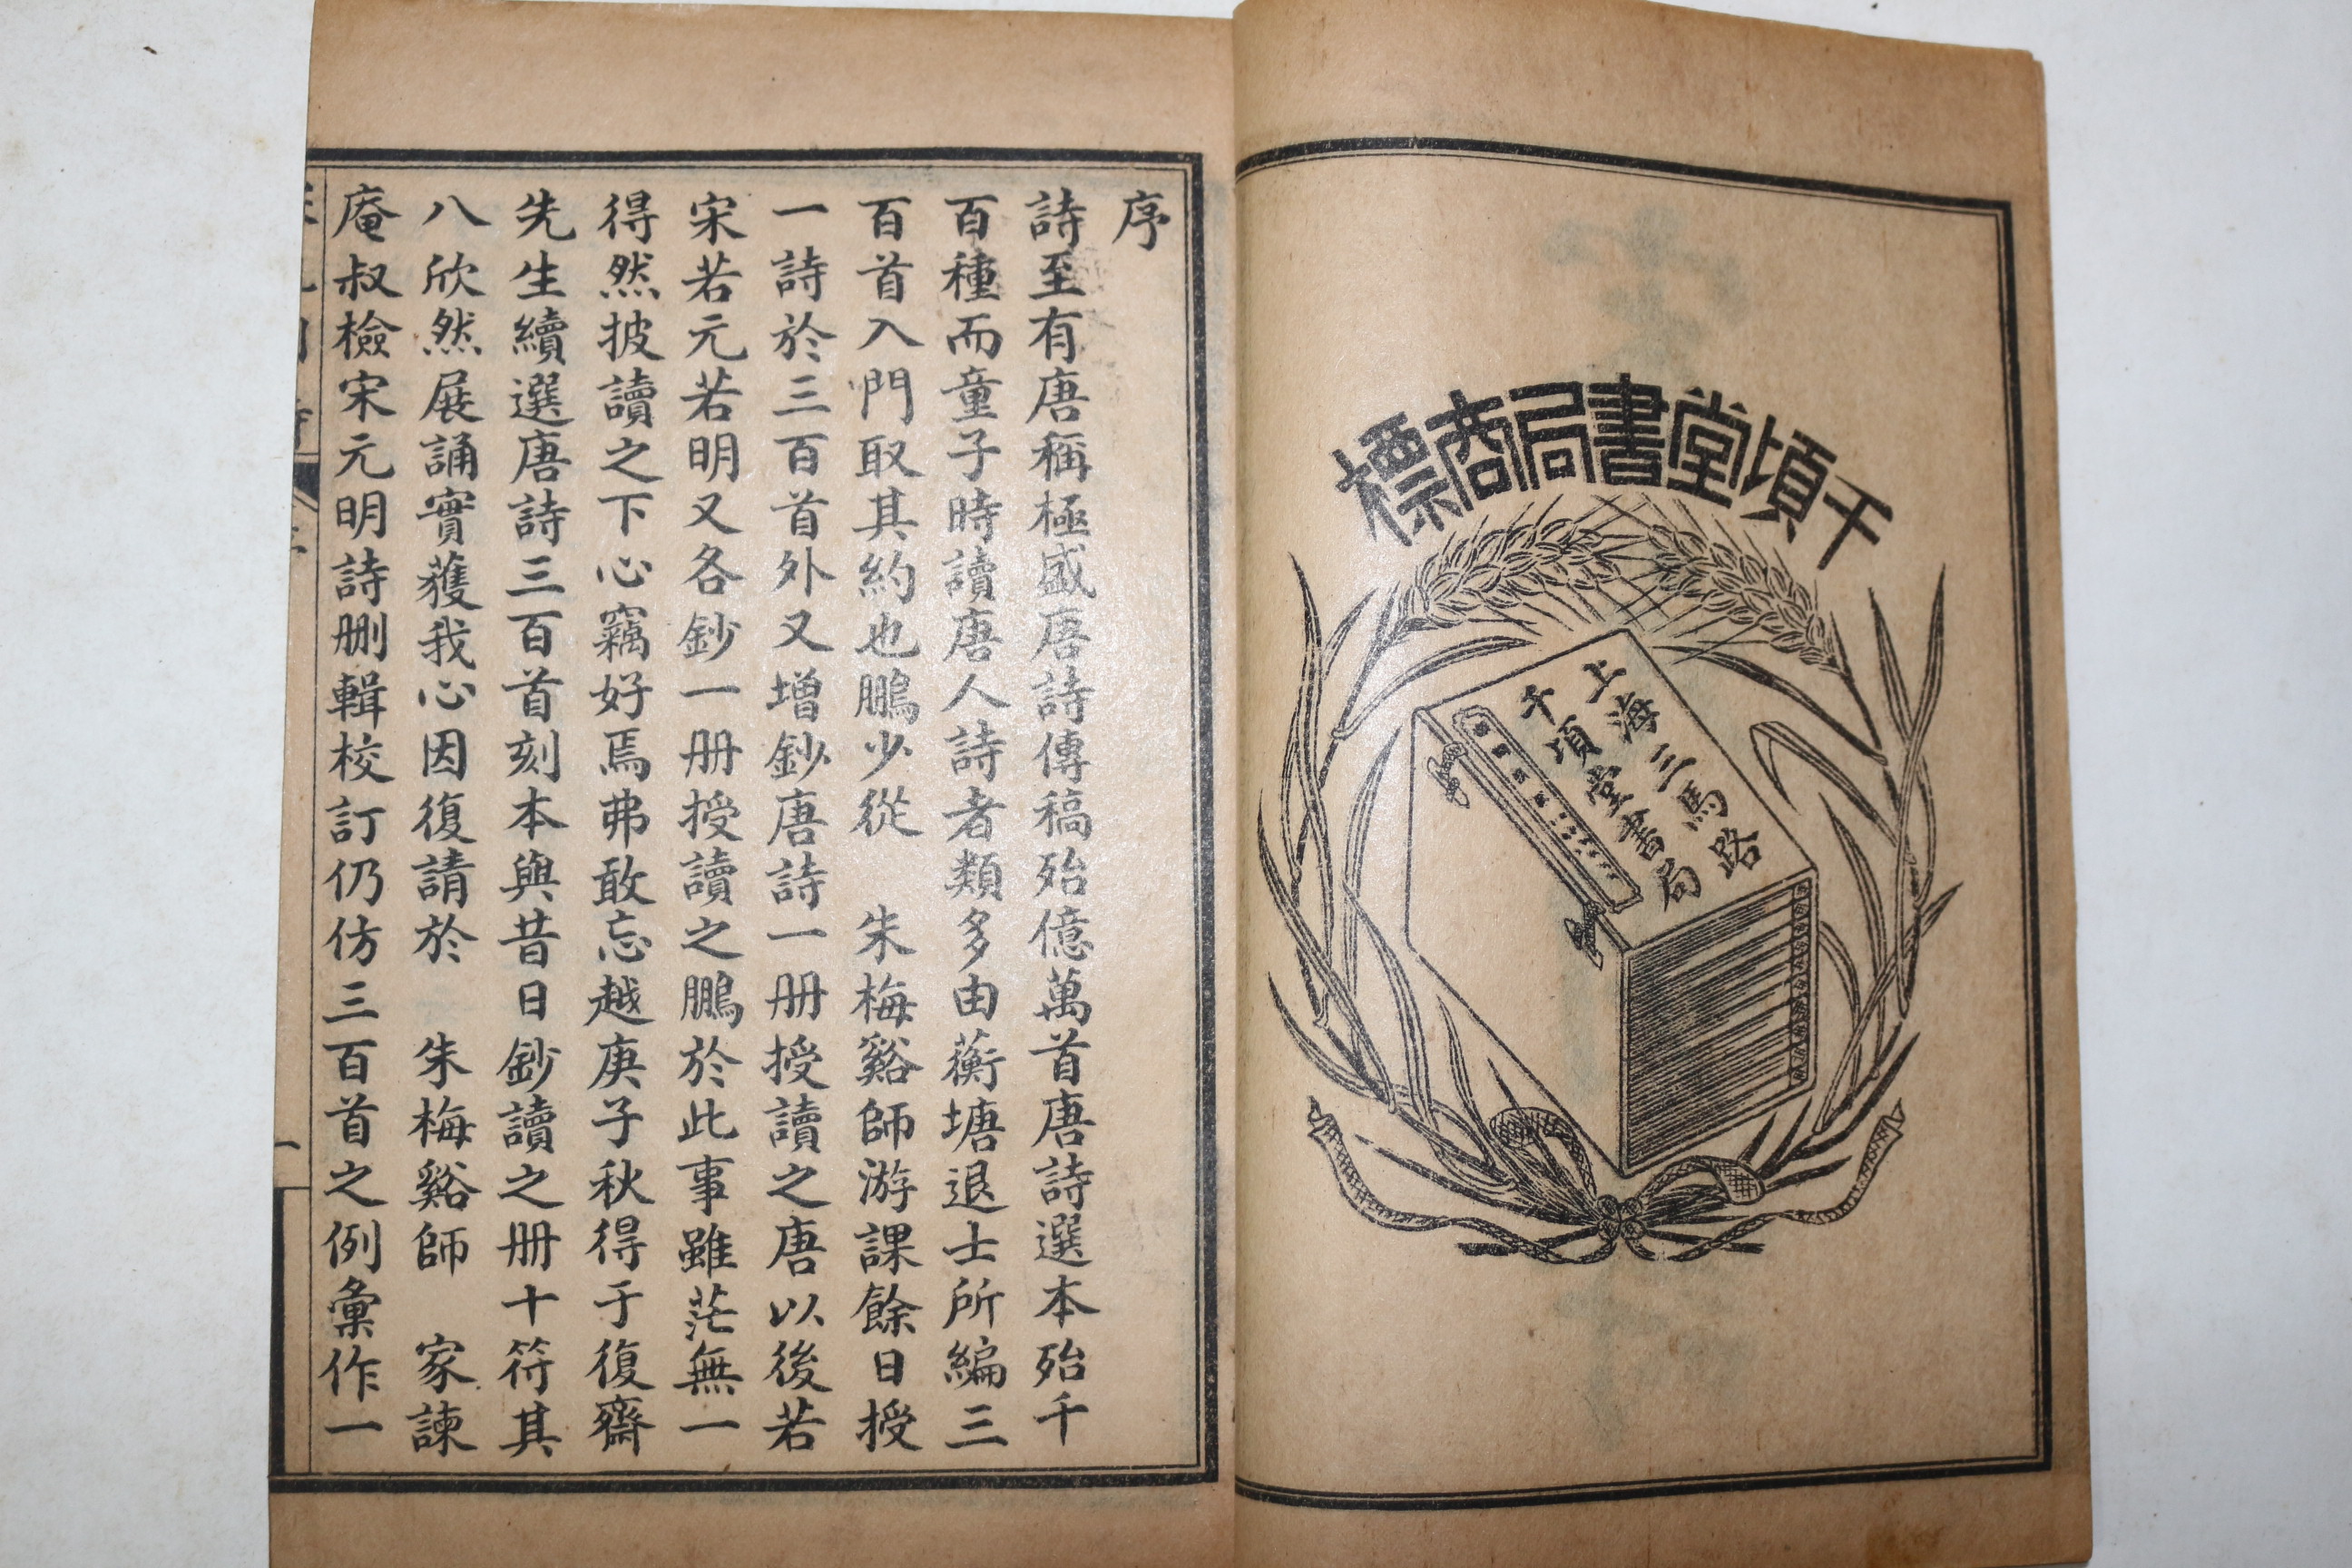 千頃堂書局商標
上海三馬路
千頃堂書局
序
詩至有唐稱極盛唐詩傳稿殆億萬首唐詩選本殆千
百種而童子時讀唐人詩者類多由蘅塘退士所編三
百首入門取其約也鵬少從 朱梅谿師游課餘日授
一詩於三百首外又增鈔唐詩一册授讀之唐以後若
宋若元若明又各鈔一册授讀之鵬於此事雖茫無一
得然披讀之下心竊好焉弗敢忘越庚子秋得于復齋
先生續選唐詩三百首刻本與昔日鈔讀之册十符其
八欣然展誦實獲我心因復請於 朱梅谿師 家諫
庵叔檢宋元明詩删輯校訂仍仿三百首之例彙作一
一